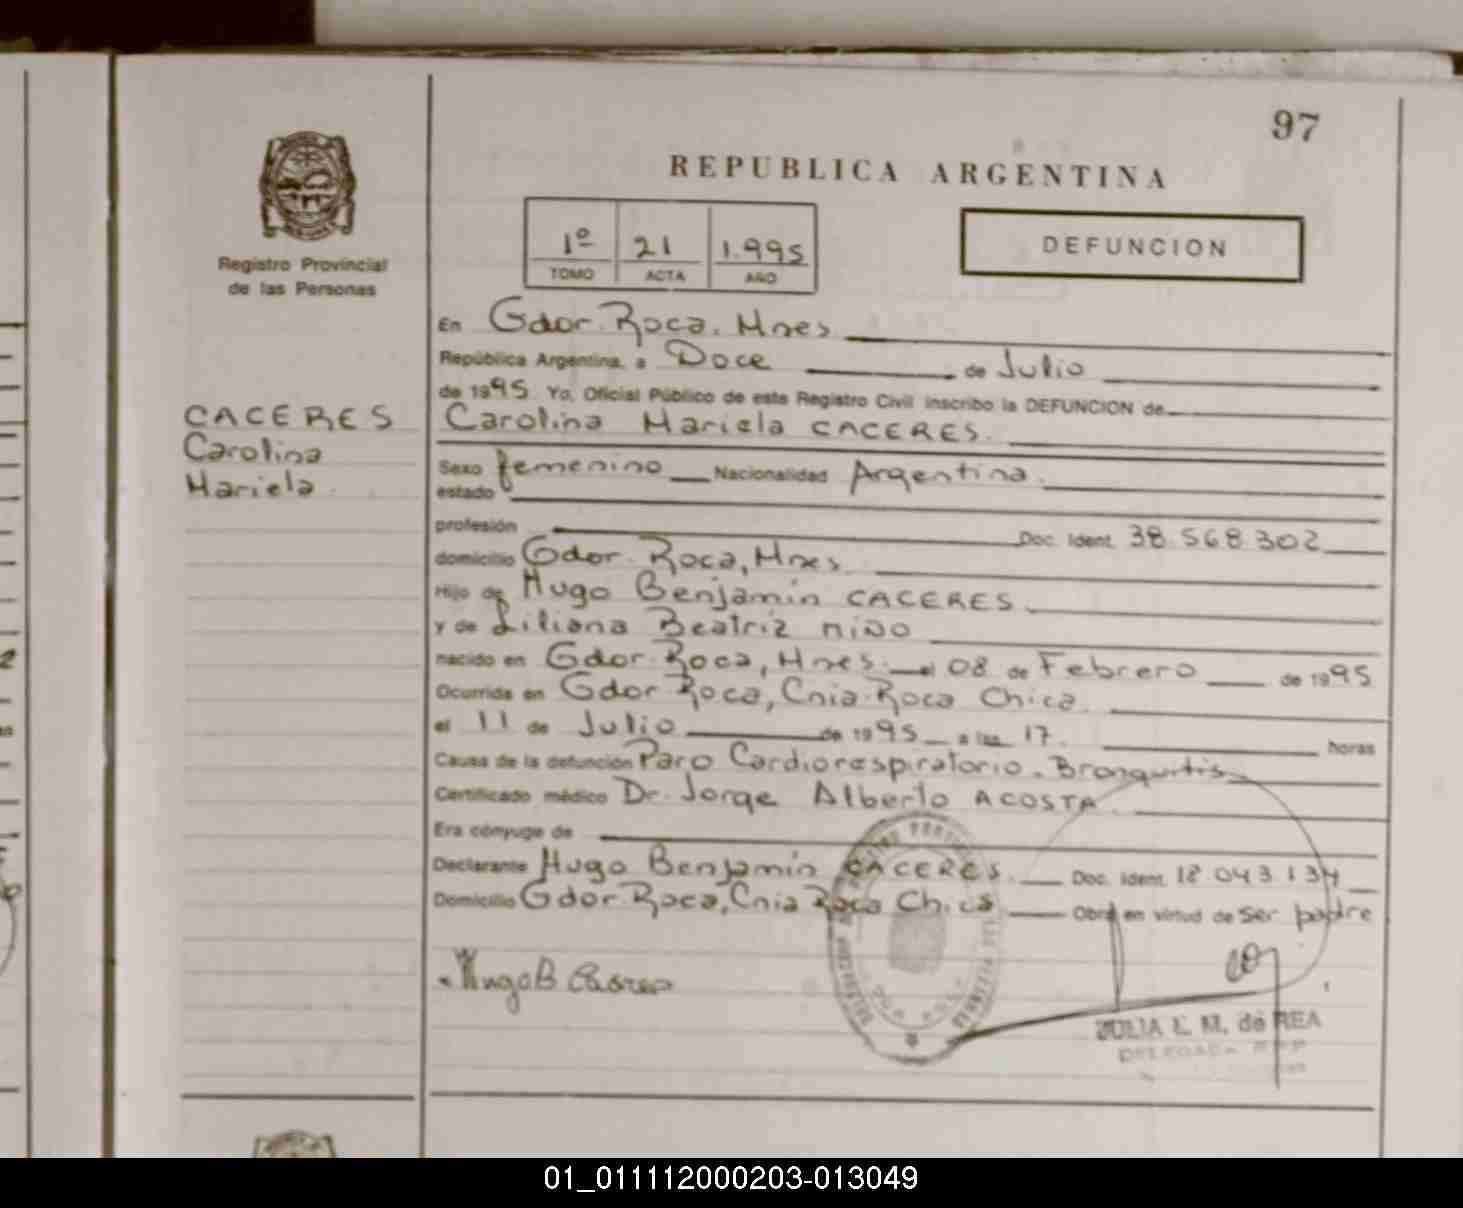 97
REPUBLICA ARGENTINA
Registro Provincial
de las Personas
1º 21 1.995
TOMO ACTA AÑO
DEFUNCION
En Gdor. Roca. Mnes
República Argentina, a Doce de Julio
de 1995 Yo, Oficial Público de este Registro Civil inscribo la DEFUNCION de
CACERES
Carolina
Mariela
Carolina Mariela CACERES.
Sexo femenino Nacionalidad Argentina.
estado
profesión Doc. Ident. 38.568.302
domicilio Gdor. Roca, Mnes.
Hijo de Hugo Benjamín CACERES.
y de Liliana Beatriz NIÑO
nacido en Gdor. Roca, Mnes. el 08 de Febrero de 1995
Ocurrida en Gdor Roca, Cnia. Roca Chica.
el 11 de Julio de 1995 a las 17. horas
Causa de la defunción Paro Cardiorespiratorio. Bronquitis
Certificado médico Dr. Jorge Alberto ACOSTA.
Era cónyuge de
Declarante Hugo Benjamín CACERES. Doc. Ident. 18.043.134
Domicilio Gdor. Roca, Cnia Roca Chica Obra en virtud de ser padre
Hugo B Caceres
JULIA E. M. de REA
01_011112000203-013049